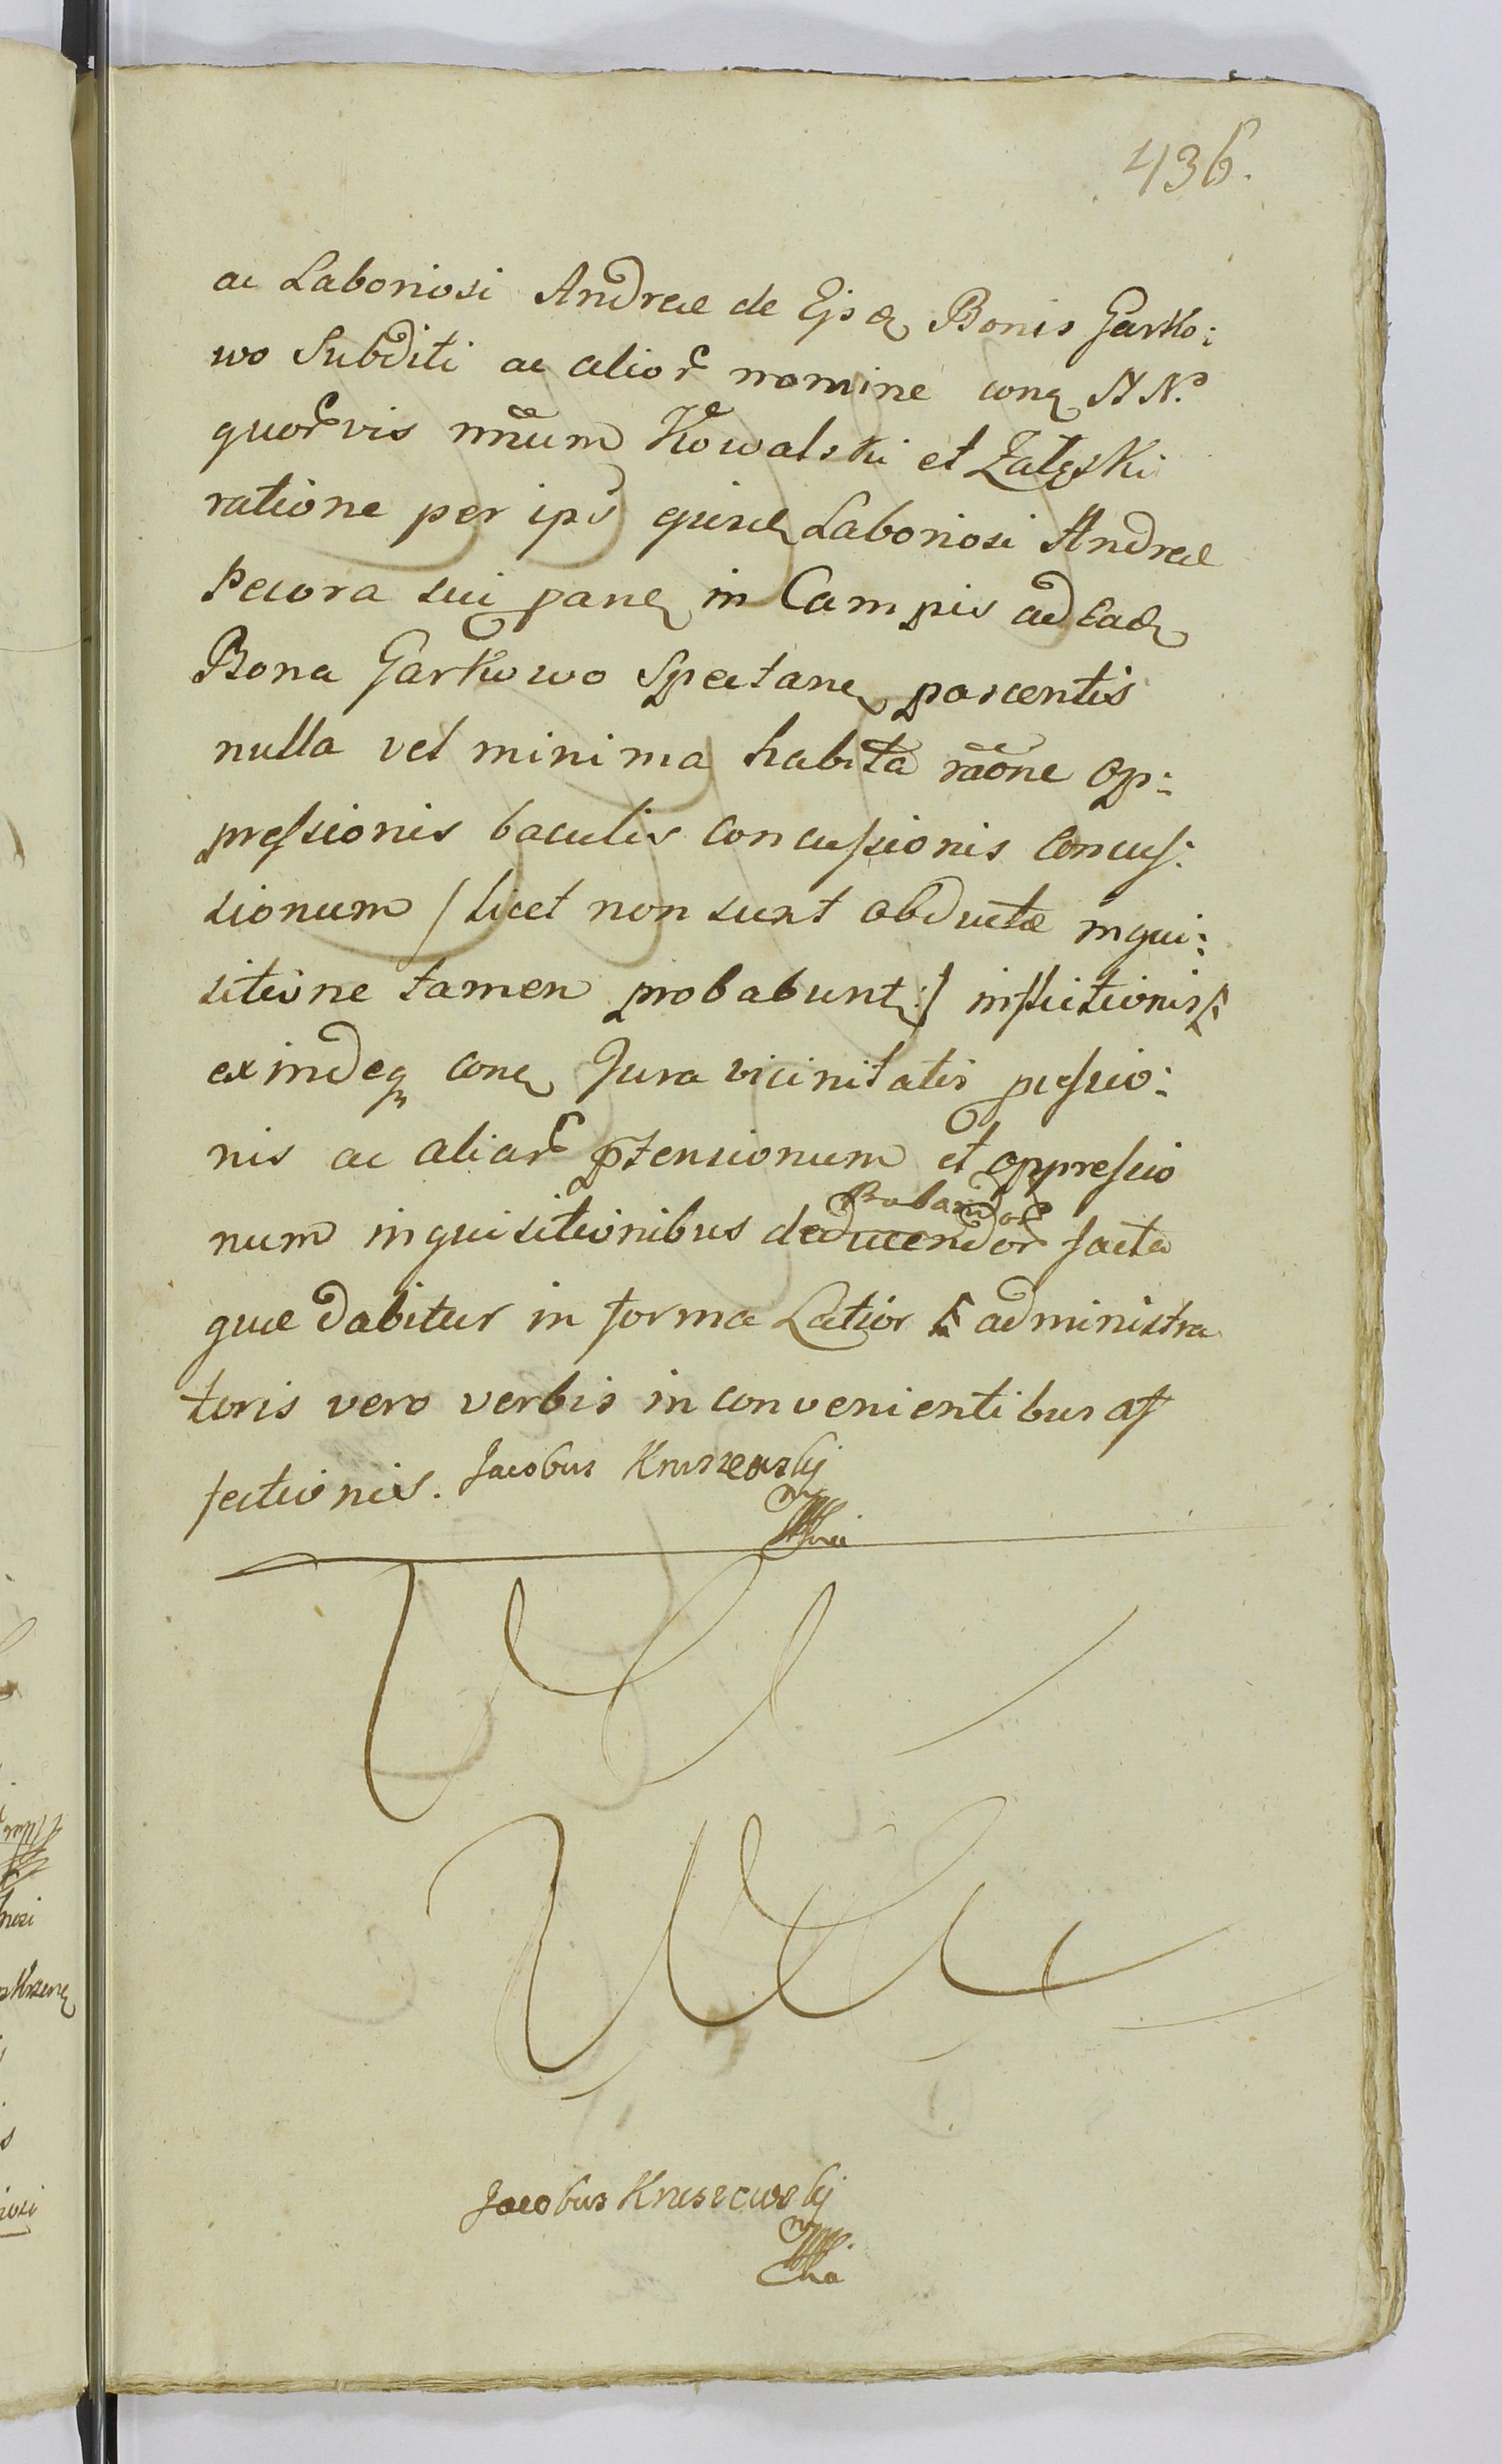 436.
ac Laboriosi Andreae de Ejsd Bonis Garko:
wo Subditi ac alior nomine conq NN.
quorvis mnium Kowalski et Załęski
ratione per ips quinq Laboriosi Andreae
Pecora sui pane in Campis ad ead
Bona Garkowo Spectane pascentis
nulla vel minima habita raone Op:
pressionis baculis concussionis Concus:
sionum / licet non sunt obductae inqui:
sitione tamen probabunt :/ inflictionis
exindeq cone Jura vicinitatis pressio:
nis ac aliar ptensionum et oppressio
num inquisitionibus deducendor Probandor facta
quae dabitur in forma Latior administra
toris vero verbis inconvenientibus af
fectionis. Jacobus Kruszewskj
Jacobus Kruszewskj
nesi